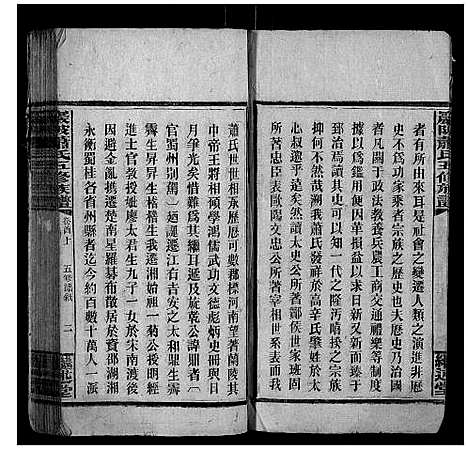 者有所由來耳是社會之變遷人類之演進非歷
史不爲功家乘者宗族之歷史也夫歷史乃治國
者凡關于政法教養兵農工商交通禮樂等制度
據以爲鑑用便因革損益以求日新又新而臻于
致治焉讀其史可以知一代之隆汚嘻挼之宗族
又何不然哉溯我蕭氏發祥於高辛氏肇姓於太
心叔遐乎是矣然讀太史公所著酇侯世家班固
所著忠臣表歐陽文忠公所著宰相世系表而我
蕭氏世世相承歷歷可數郡標河南望著蘭陵其
中帝王將相傾學鴻儒武功文德彪炳史冊與日
月爭光矣惜軼及旋彰公諱鼎者
官蜀州別駕
霽生昇昇生梧梧生我遷湘始祖一菊公授明經
進士官教授妣廖太君生九子一女於宋南渡後
因避金亂攜遷楚南星羅碁布散居於資邵湖湘
永衡蜀桂各省州縣者迄今約百數十萬人一派
蕭氏五修族譜
卷首上
五修
二